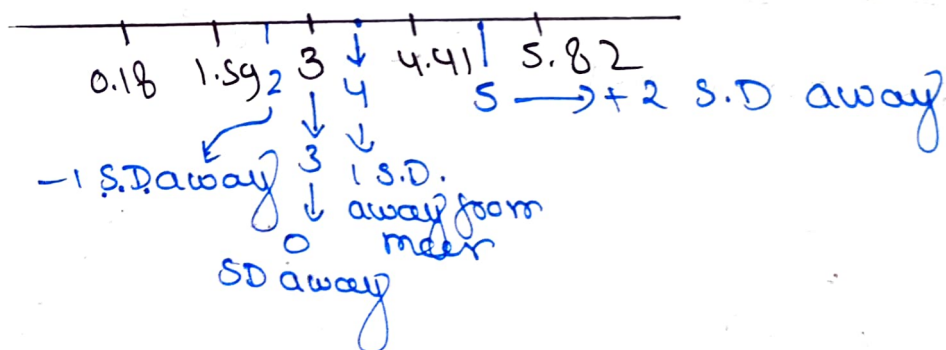 0.18 1.59 2 3 4 4.41 5.82
5 → +2 S.D away
-1 S.D. away 3 1 S.D.
away from
0 mean
SD away